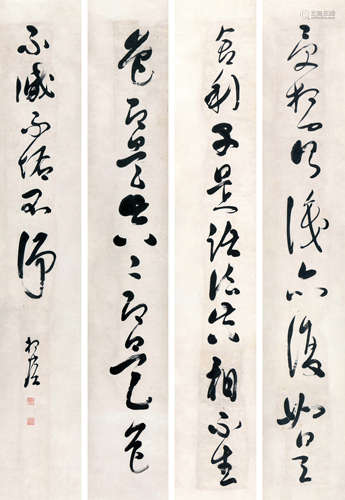 受想行識亦復如是
舍利子是諸法空相不生
色即是空〻即是色
不滅不垢不淨